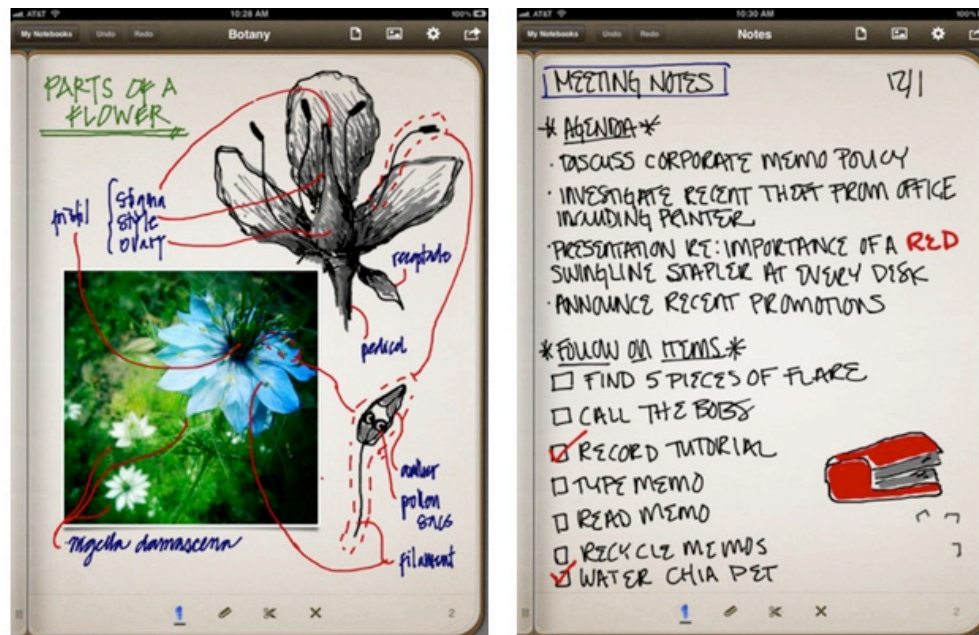 AT&T 10:28 AM 100%
My Notebooks Undo Redo Botany
PARTS OF A
FLOWER
pistil
stigma
style
ovary
receptacle
pedicel
anther
pollon
sacs
filament
nigella damascena
1
2
AT&T 10:30 AM 100%
My Notebooks Undo Redo Notes
MEETING NOTES 12/1
*AGENDA*
· DISCUSS CORPORATE MEMO POLICY
· INVESTIGATE RECENT THEFT FROM OFFICE
INCLUDING PRINTER
· PRESENTATION RE: IMPORTANCE OF A RED
SWINGLINE STAPLER AT EVERY DESK
· ANNOUNCE RECENT PROMOTIONS
*FOLLOW ON ITEMS*
FIND 5 PIECES OF FLARE
CALL THE BOBS
RECORD TUTORIAL
TYPE MEMO
READ MEMO
RECYCLE MEMOS
WATER CHIA PET
1
2